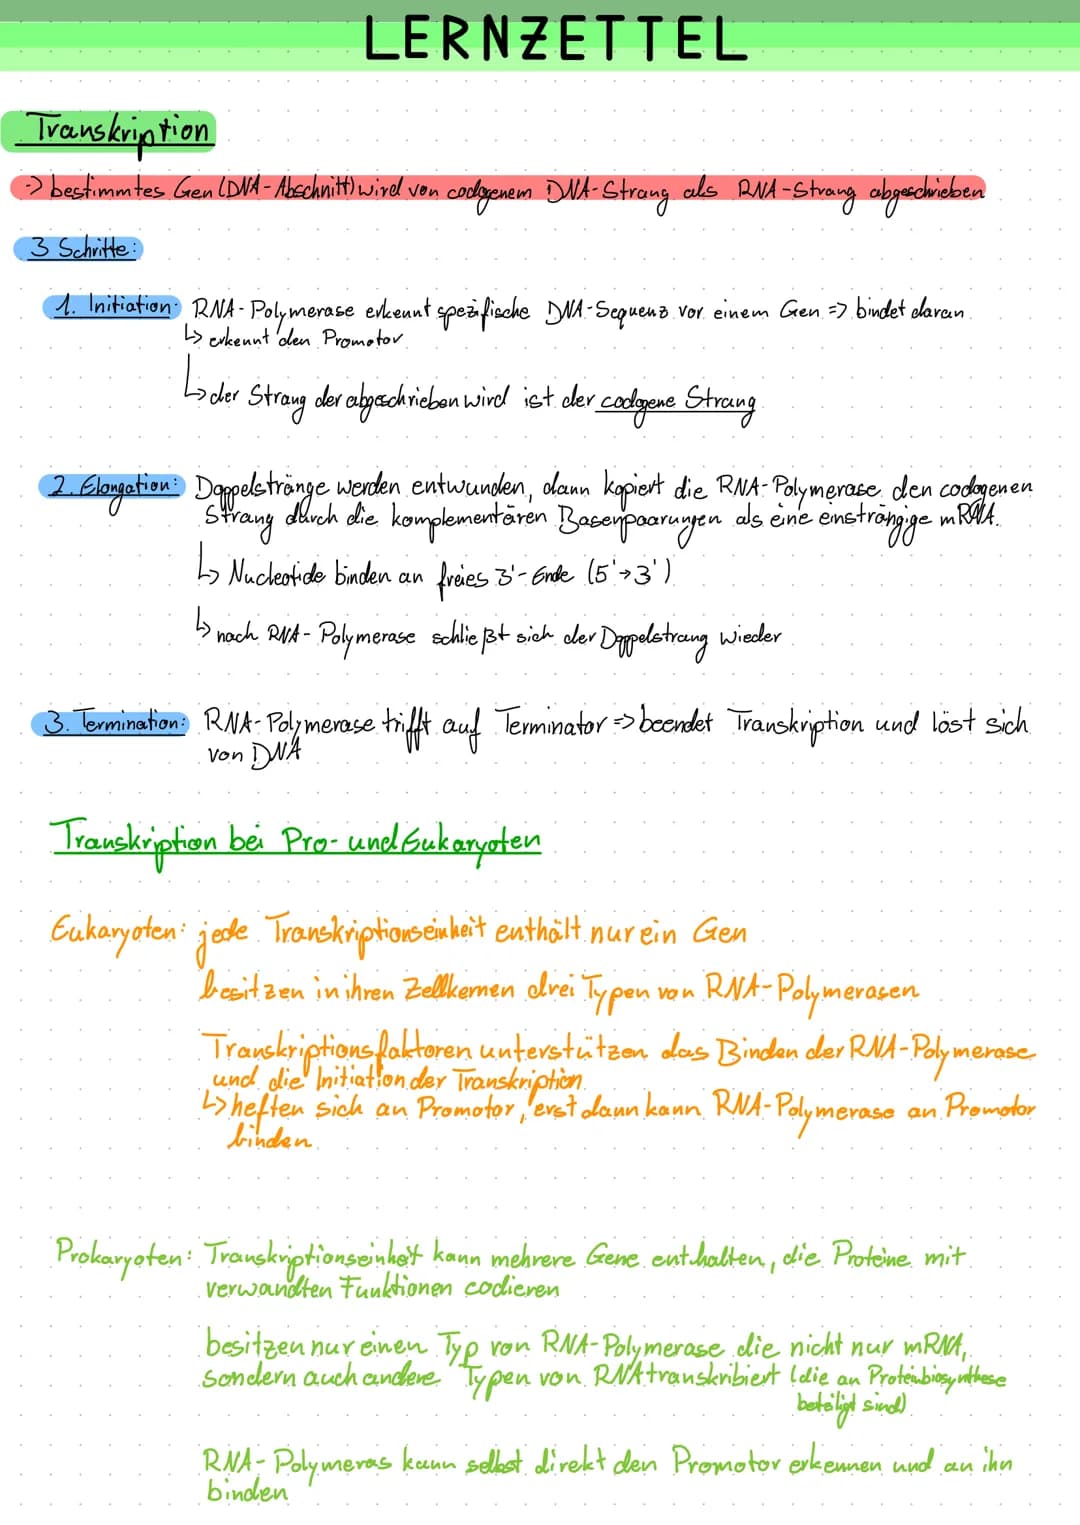 LERNZETTEL
Transkription
-> bestimmtes Gen (DNA-Abschnitt) wird von codogenem DNA-Strang als RNA-Strang abgeschrieben
3 Schritte:
1. Initiation: RNA-Polymerase erkennt spezifische DNA-Sequenz vor einem Gen => bindet daran
↳ erkennt den Promotor
↳ der Strang der abgeschrieben wird ist der codogene Strang
2. Elongation: Doppelstränge werden entwunden, dann kopiert die RNA-Polymerase den codogenen
Strang durch die komplementären Basenpaarungen als eine einsträngige mRNA.
↳ Nucleotide binden an freies 3'-Ende (5'→3')
↳ nach RNA-Polymerase schließt sich der Doppelstrang wieder
3. Termination: RNA-Polymerase trifft auf Terminator => beendet Transkription und löst sich
von DNA
Transkription bei Pro- und Eukaryoten
Eukaryoten: jede Transkriptionseinheit enthält nur ein Gen
besitzen in ihren Zellkernen drei Typen von RNA-Polymerasen
Transkriptionsfaktoren unterstützen das Binden der RNA-Polymerase
und die Initiation der Transkription
↳ heften sich an Promotor, erst dann kann RNA-Polymerase an Promotor
binden
Prokaryoten: Transkriptionseinheit kann mehrere Gene enthalten, die Proteine mit
verwandten Funktionen codieren
besitzen nur einen Typ von RNA-Polymerase die nicht nur mRNA,
sondern auch andere Typen von RNA transkribiert (die an Proteinbiosynthese
beteiligt sind)
RNA-Polymeras kann selbst direkt den Promotor erkennen und an ihn
binden